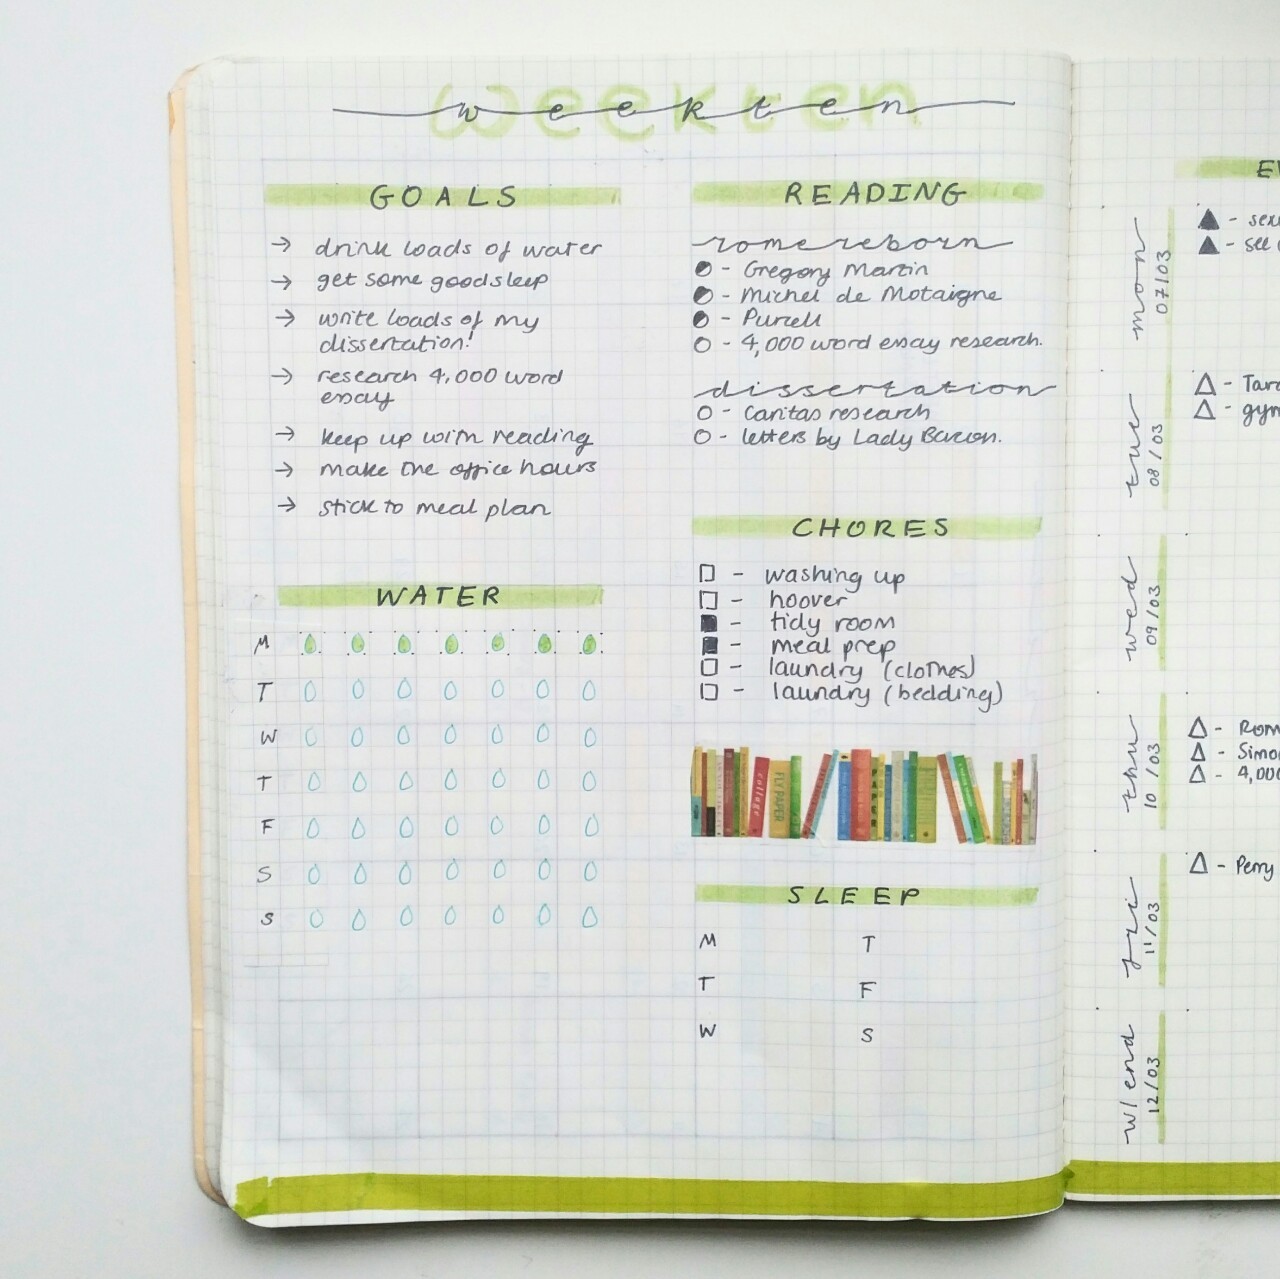 week ten
week ten
GOALS
→ drink loads of water
→ get some good sleep
→ write loads of my
dissertation!
→ research 4,000 word
essay
→ keep up with reading
→ make the office hours
→ stick to meal plan
WATER
M
T
W
T
F
S
S
READING
rome reborn
- Gregory Martin
- Michel de Motaigne
- Purcell
- 4,000 word essay research.
dissertation
- Caritas research
- letters by Lady Bacon.
CHORES
- washing up
- hoover
- tidy room
- meal prep
- laundry (clothes)
- laundry (bedding)
collage
FLY PAPER
PAPER
SLEEP
M T
T F
W S
mon
07/03
- see
tue
08/03
- gym
wed
09/03
thu
10/03
- Rom
- Simo
- 4,00
fri
11/03
- Perry
w/end
12/03